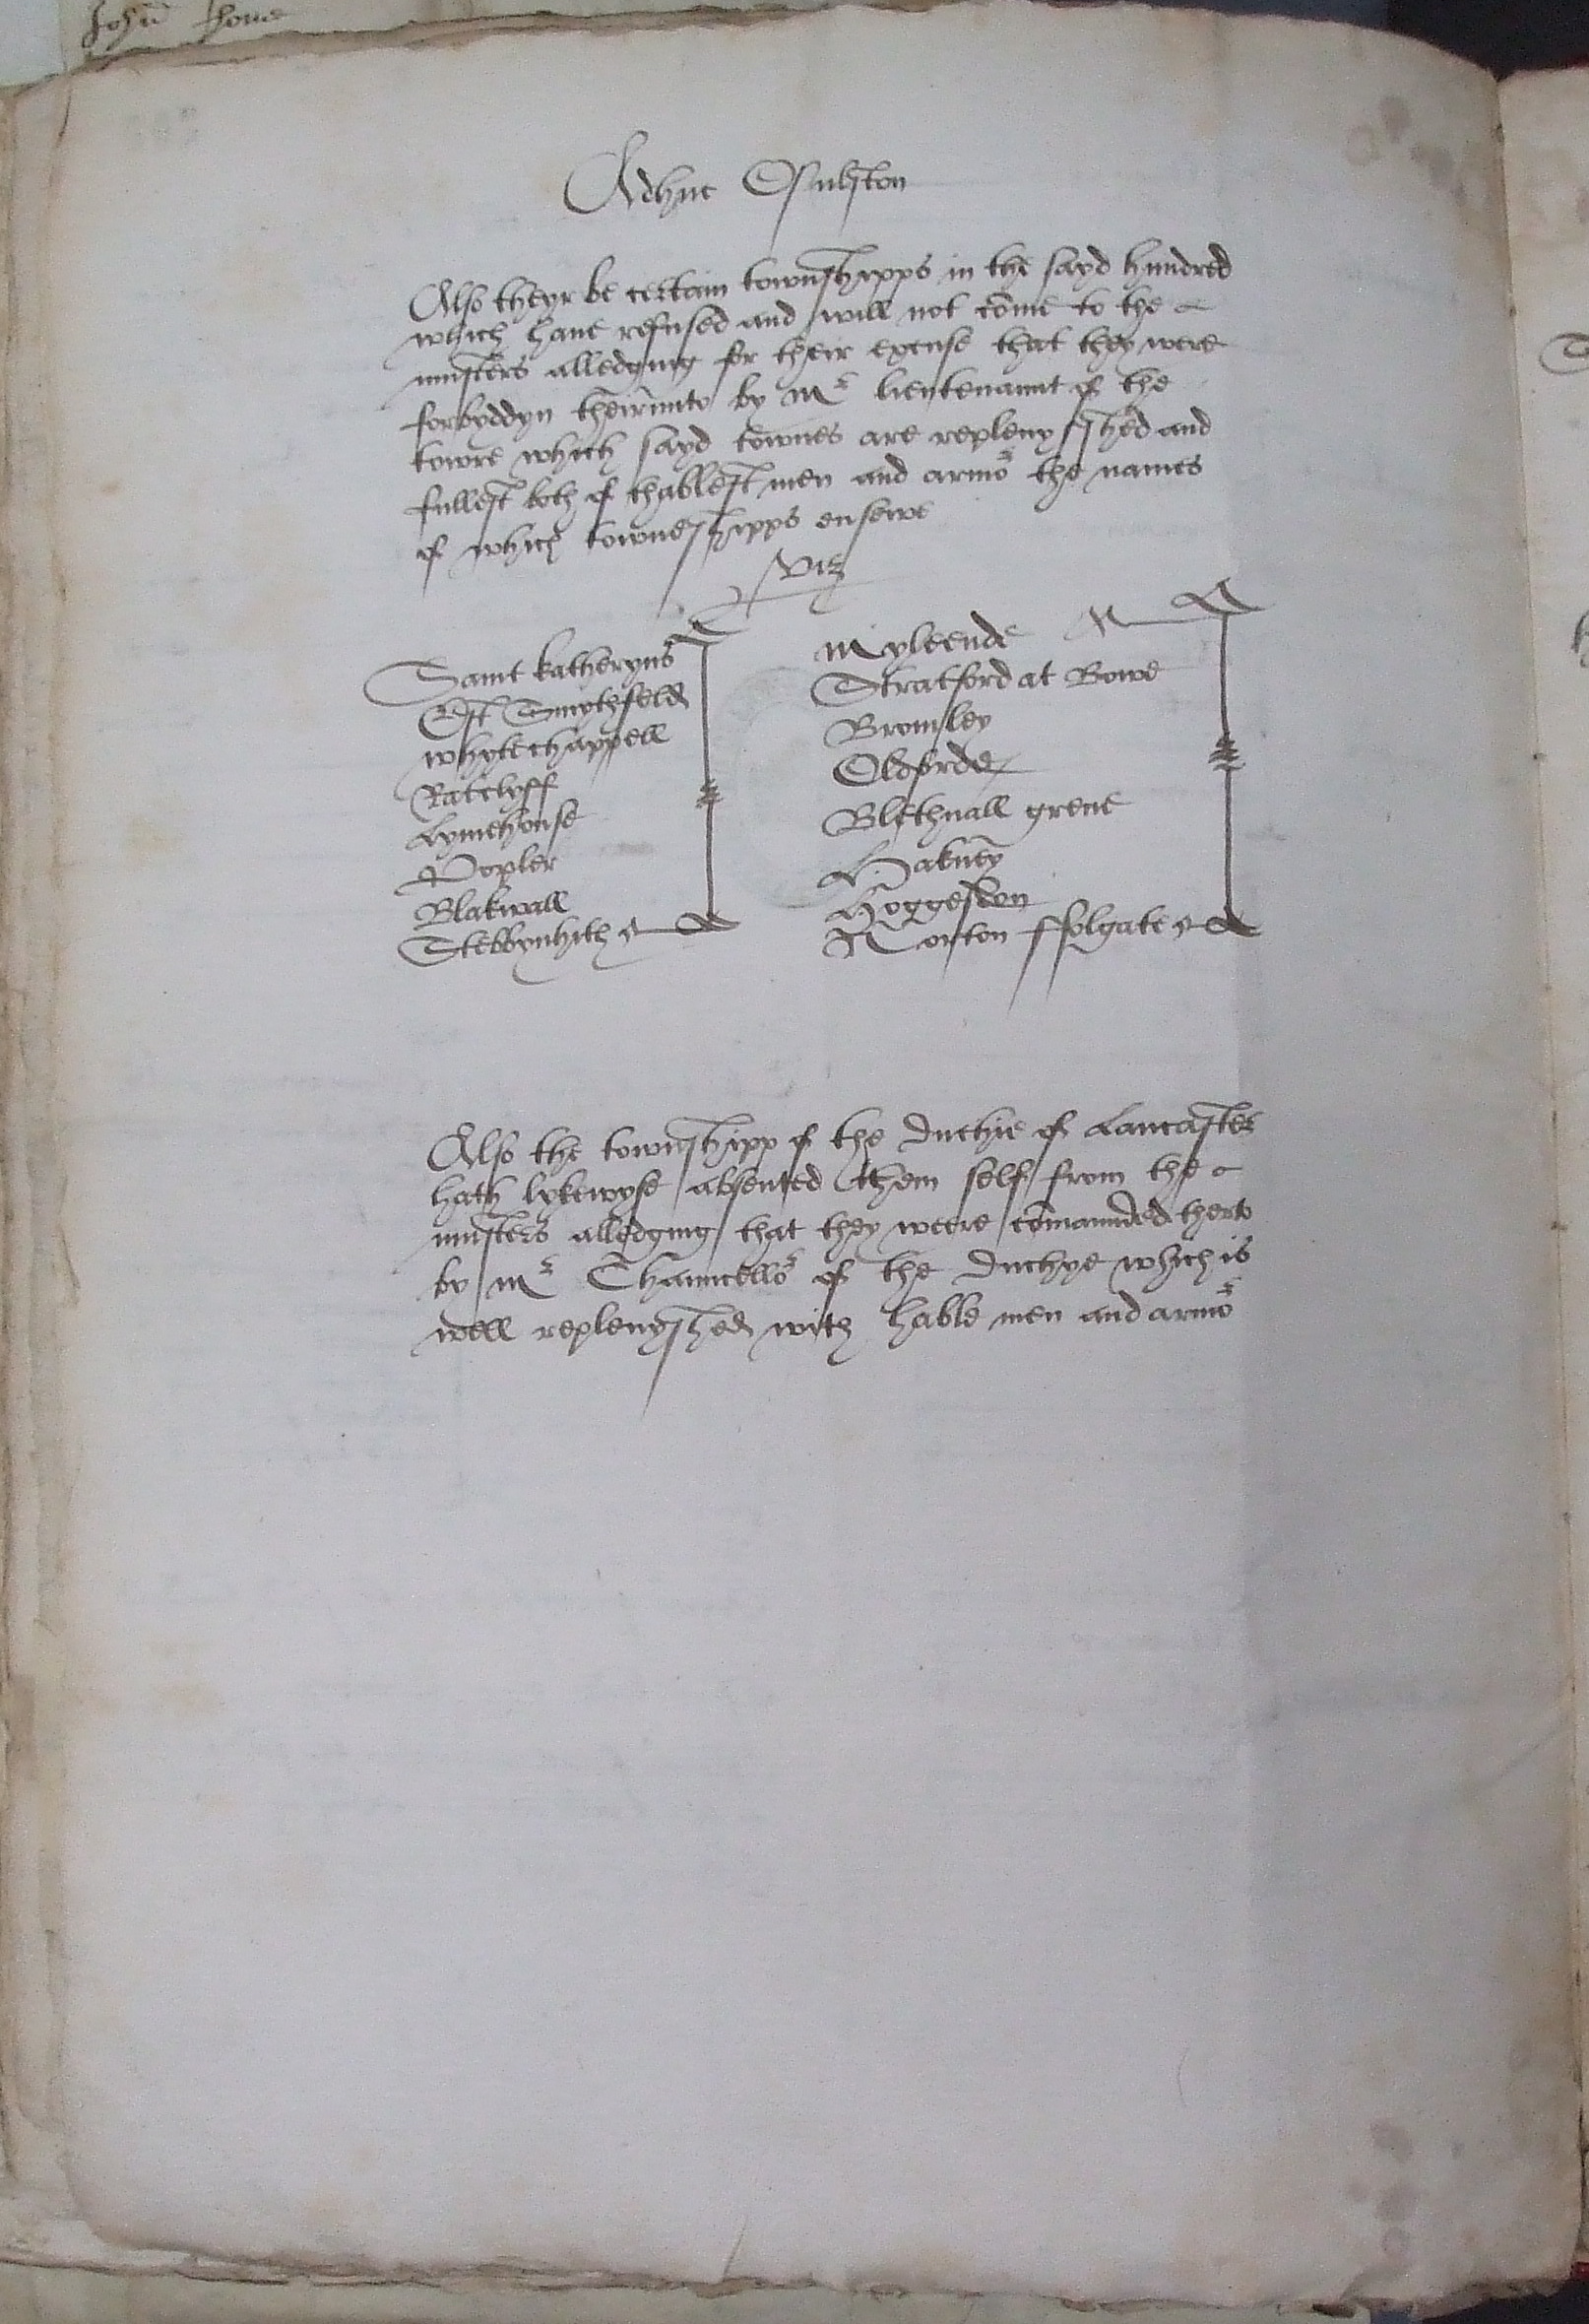 John
Adhuc Osulston
Also theyr be certain townshipps in the sayd hundred
which haue refused and will not come to the
musters alledging for their excuse that they were
forbyddyn theirunto by Mr lieutenaunt of the
towre which sayd townes are replenysshed and
fullest both of thablest men and armor the names
of which towneshipps ensewe
viz
Saint Katheryns
Est Smythfeld
Whytechappell
Ratclyff
Lymehouse
Popler
Blakwall
Stebbynhith
Myleende
Stratford at Bowe
Bromley
Oldforde
Blethnall grene
Hakney
Hoggesdon
Norton ffolgate
Also the townshipp of the Duchie of Lancaster
hath lykewyse absented them self from the
musters alledging that they weere comaunded therto
by Mr Chauncellor of the Duchye which is
well replenyshed with hable men and armor